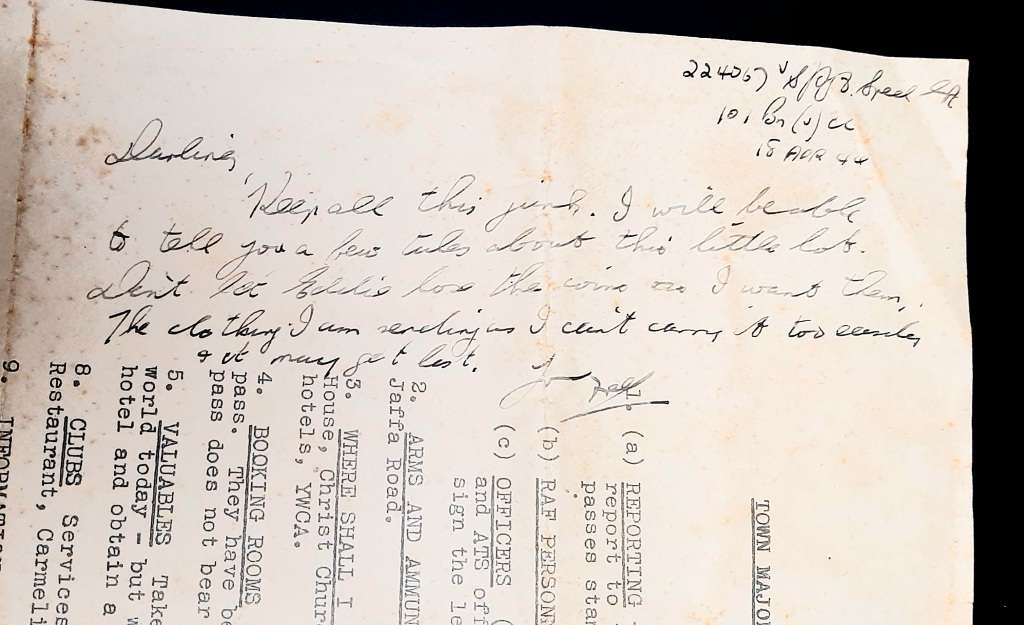 224067 V S/ Speed
101 Bn (V) CC
18 APR 44
Darling,
Keep all this junk. I will be able
to tell you a few tales about this little lot.
Don't let Eddie lose the coins as I want them,
The clothing I am sending as I can't carry it too easily
& it may get lost.
TOWN MAJO
1. (a) REPORTING
report to
passes stan
(b) RAF PERSONN
(c) OFFICERS (
and ATS off
sign the le
2. ARMS AND AMMUN
Jaffa Road.
3. WHERE SHALL I
House, Christ Chur
hotels, YWCA.
4. BOOKING ROOMS
pass. They have be
pass does not bear
5. VALUABLES Take
world today - but w
hotel and obtain a
8. CLUBS Services
Restaurant, Carmeli
9. INFORMATION